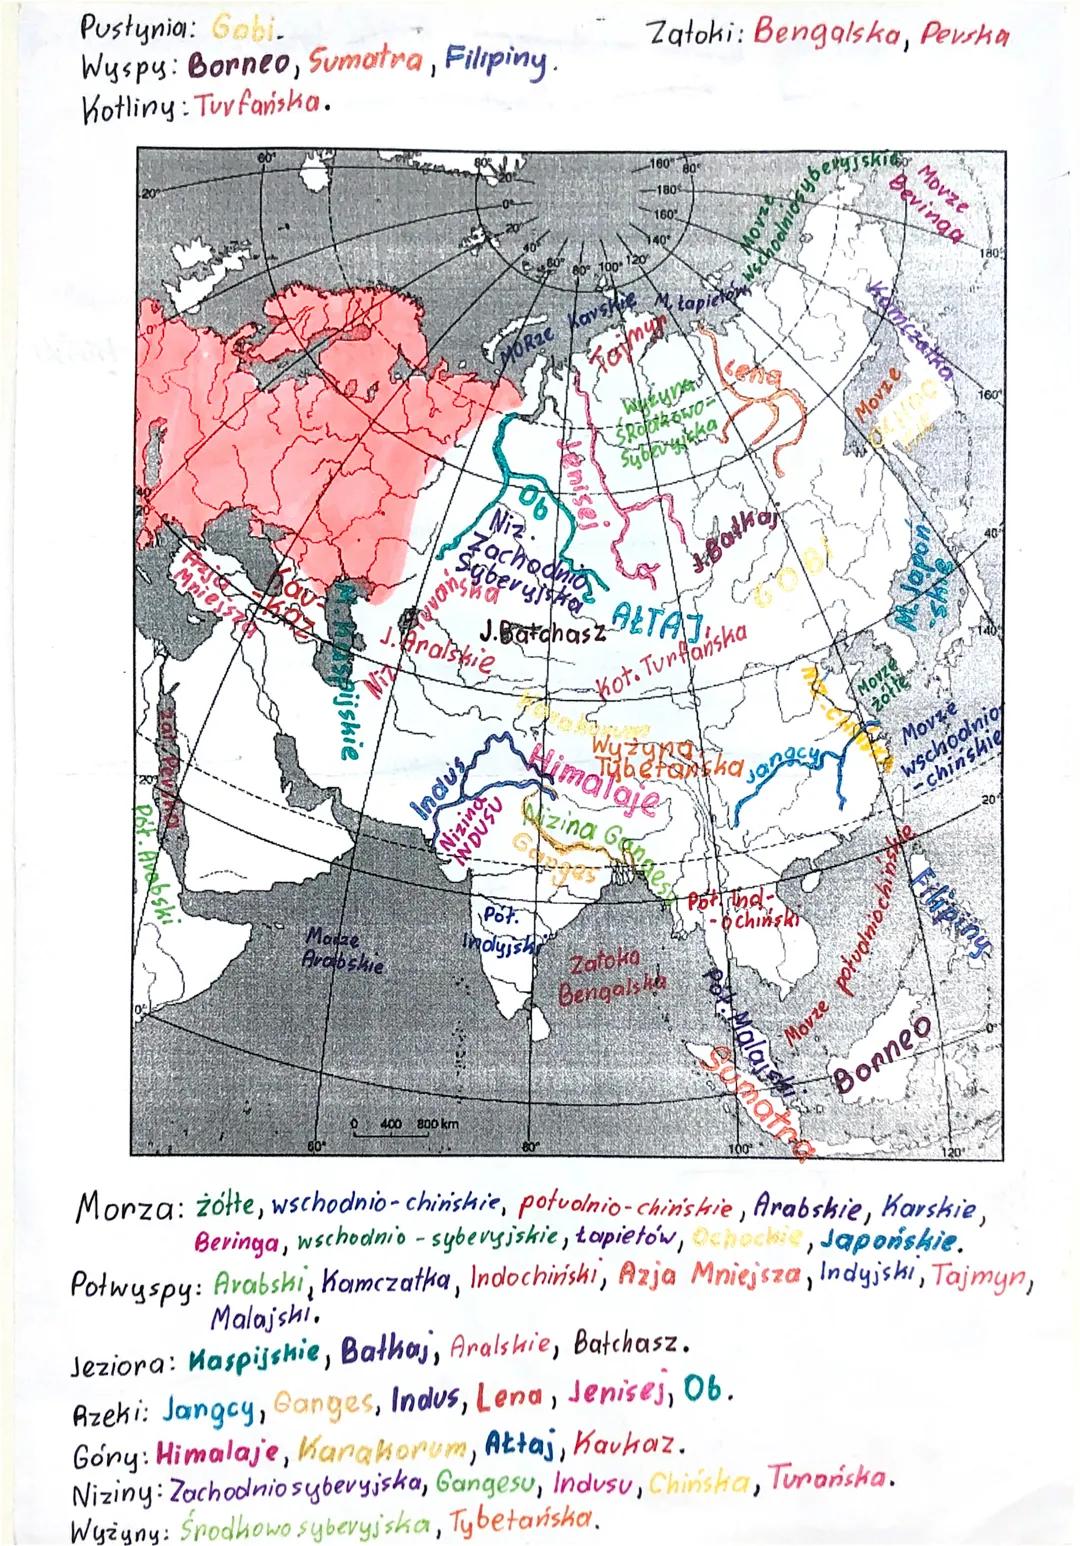 Pustynia: Gobi.
Zatoki: Bengalska, Perska
Wyspy: Borneo, Sumatra, Filipiny.
Kotliny: Turfańska.
60°
80°
160°
80°
20°
20°
180°
0°
160°
20
140°
40°
60°
80°
100°
120°
180°
160°
40°
40°
140°
20°
20°
0°
0°
Morze
wschodniosyberyjskie
Morze
Beringa
MORze Karskie
M. Łapietów
Tajmyr
Kamczatka
Lena
Morze
OCHOC
KIE
Wyżyna
ŚRodkowo-
Syberyjska
Jenisej
Ob
Niz.
Zachodnio
Syberyjska
J.Bałkaj
GOBI
M. Japoń
skie
Azja
Mniejsza
Kav-
-kaz
M. Kaspijskie
Niz
Turańska
J. Aralskie
J.Bałchasz
AŁTAJ
Kot. Turfańska
Morze
żółte
NIZ-CHIŃSKA
Karakorum
Wyżyna
Tybetańska
Jangcy
Morze
wschodnio
-chińskie
Himalaje
Indus
Nizina
INDUSU
Nizina Gangesu
Ganges
zat. Perska
Pół. Arabski
Morze
Arabskie
Pół.
Indyjski
Zatoka
Bengalska
Pół. Ind-
-ochiński
Morze południochińskie
Filipiny
Pół. Malajski
Sumatra
Borneo
0 400 800 km
60°
80°
100°
120°
Morza: żółte, wschodnio-chińskie, południo-chińskie, Arabskie, Karskie,
Beringa, wschodnio - syberyjskie, Łapietów, Ochockie, Japońskie.
Półwyspy: Arabski, Kamczatka, Indochiński, Azja Mniejsza, Indyjski, Tajmyr,
Malajski.
Jeziora: Kaspijskie, Bałkaj, Aralskie, Bałchasz.
Rzeki: Jangcy, Ganges, Indus, Lena, Jenisej, Ob.
Góry: Himalaje, Karakorum, Ałtaj, Kaukaz.
Niziny: Zachodniosyberyjska, Gangesu, Indusu, Chińska, Turańska.
Wyżyny: Środkowo syberyjska, Tybetańska.